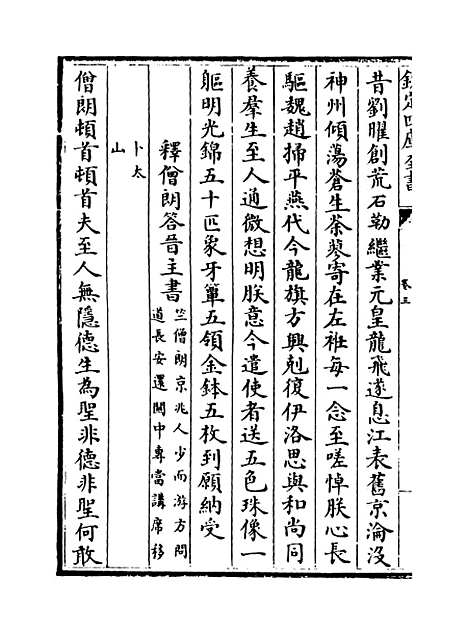 欽定四庫全書
卷三
昔劉曜創荒石勒繼業元皇龍飛遂息江表舊京淪没
神州傾蕩蒼生荼蓼寄在左衽每一念至嗟悼朕心長
驅魏趙掃平燕代今龍旗方興剋復伊洛思與和尚同
養羣生至人通微想明朕意今遣使者送五色珠像一
軀明光錦五十匹象牙簟五領金鉢五枚到願納受
釋僧朗答晉主書
竺僧朗京兆人少而游方問
道長安還關中專當講席移
卜太
山
僧朗頓首頓首夫至人無隱德生為聖非德非聖何敢